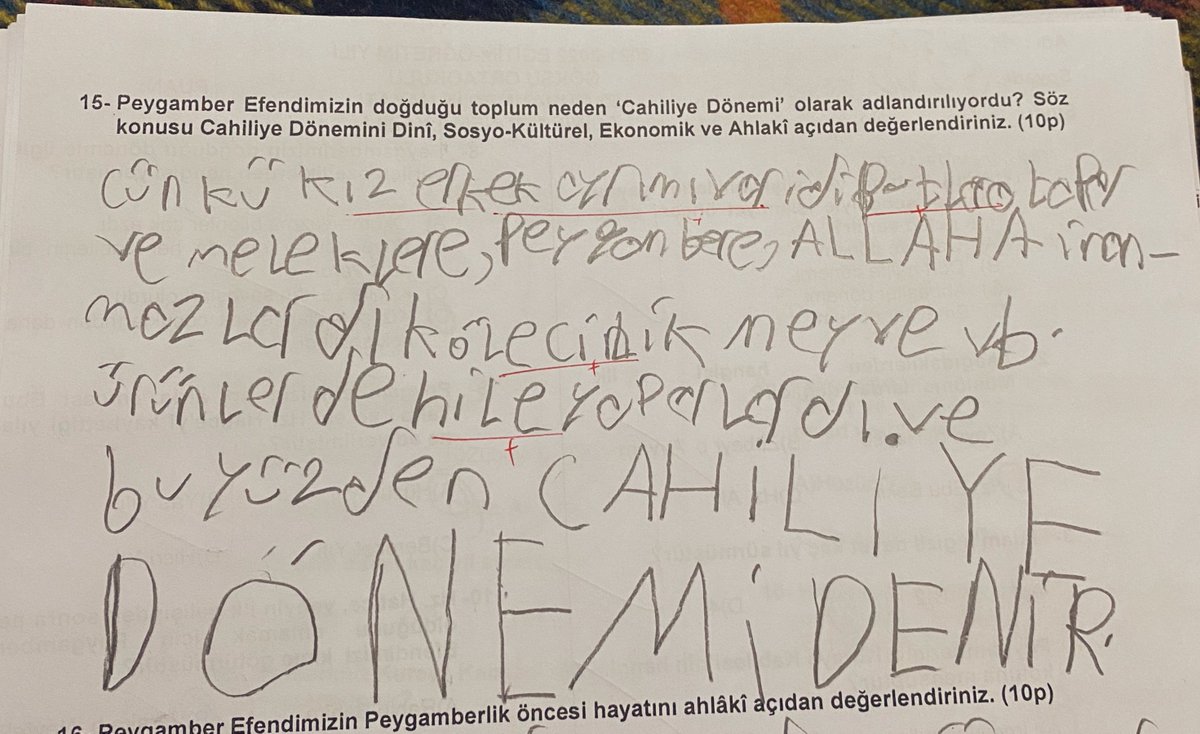 15- Peygamber Efendimizin doğduğu toplum neden 'Cahiliye Dönemi' olarak adlandırılıyordu? Söz
konusu Cahiliye Dönemini Dinî, Sosyo-Kültürel, Ekonomik ve Ahlakî açıdan değerlendiriniz. (10p)
Çünkü kız erkek ayrımı var idi Putlara tapar
ve meleklere, Peygambere, ALLAHA inan-
mazlardı kölecilik meyve vb.
ürünlerde hile yaparlardı. ve
bu yüzden CAHİLİYE
DÖNEMİ DENİR.
16- Peygamber Efendimizin Peygamberlik öncesi hayatını ahlâkî açıdan değerlendiriniz. (10p)